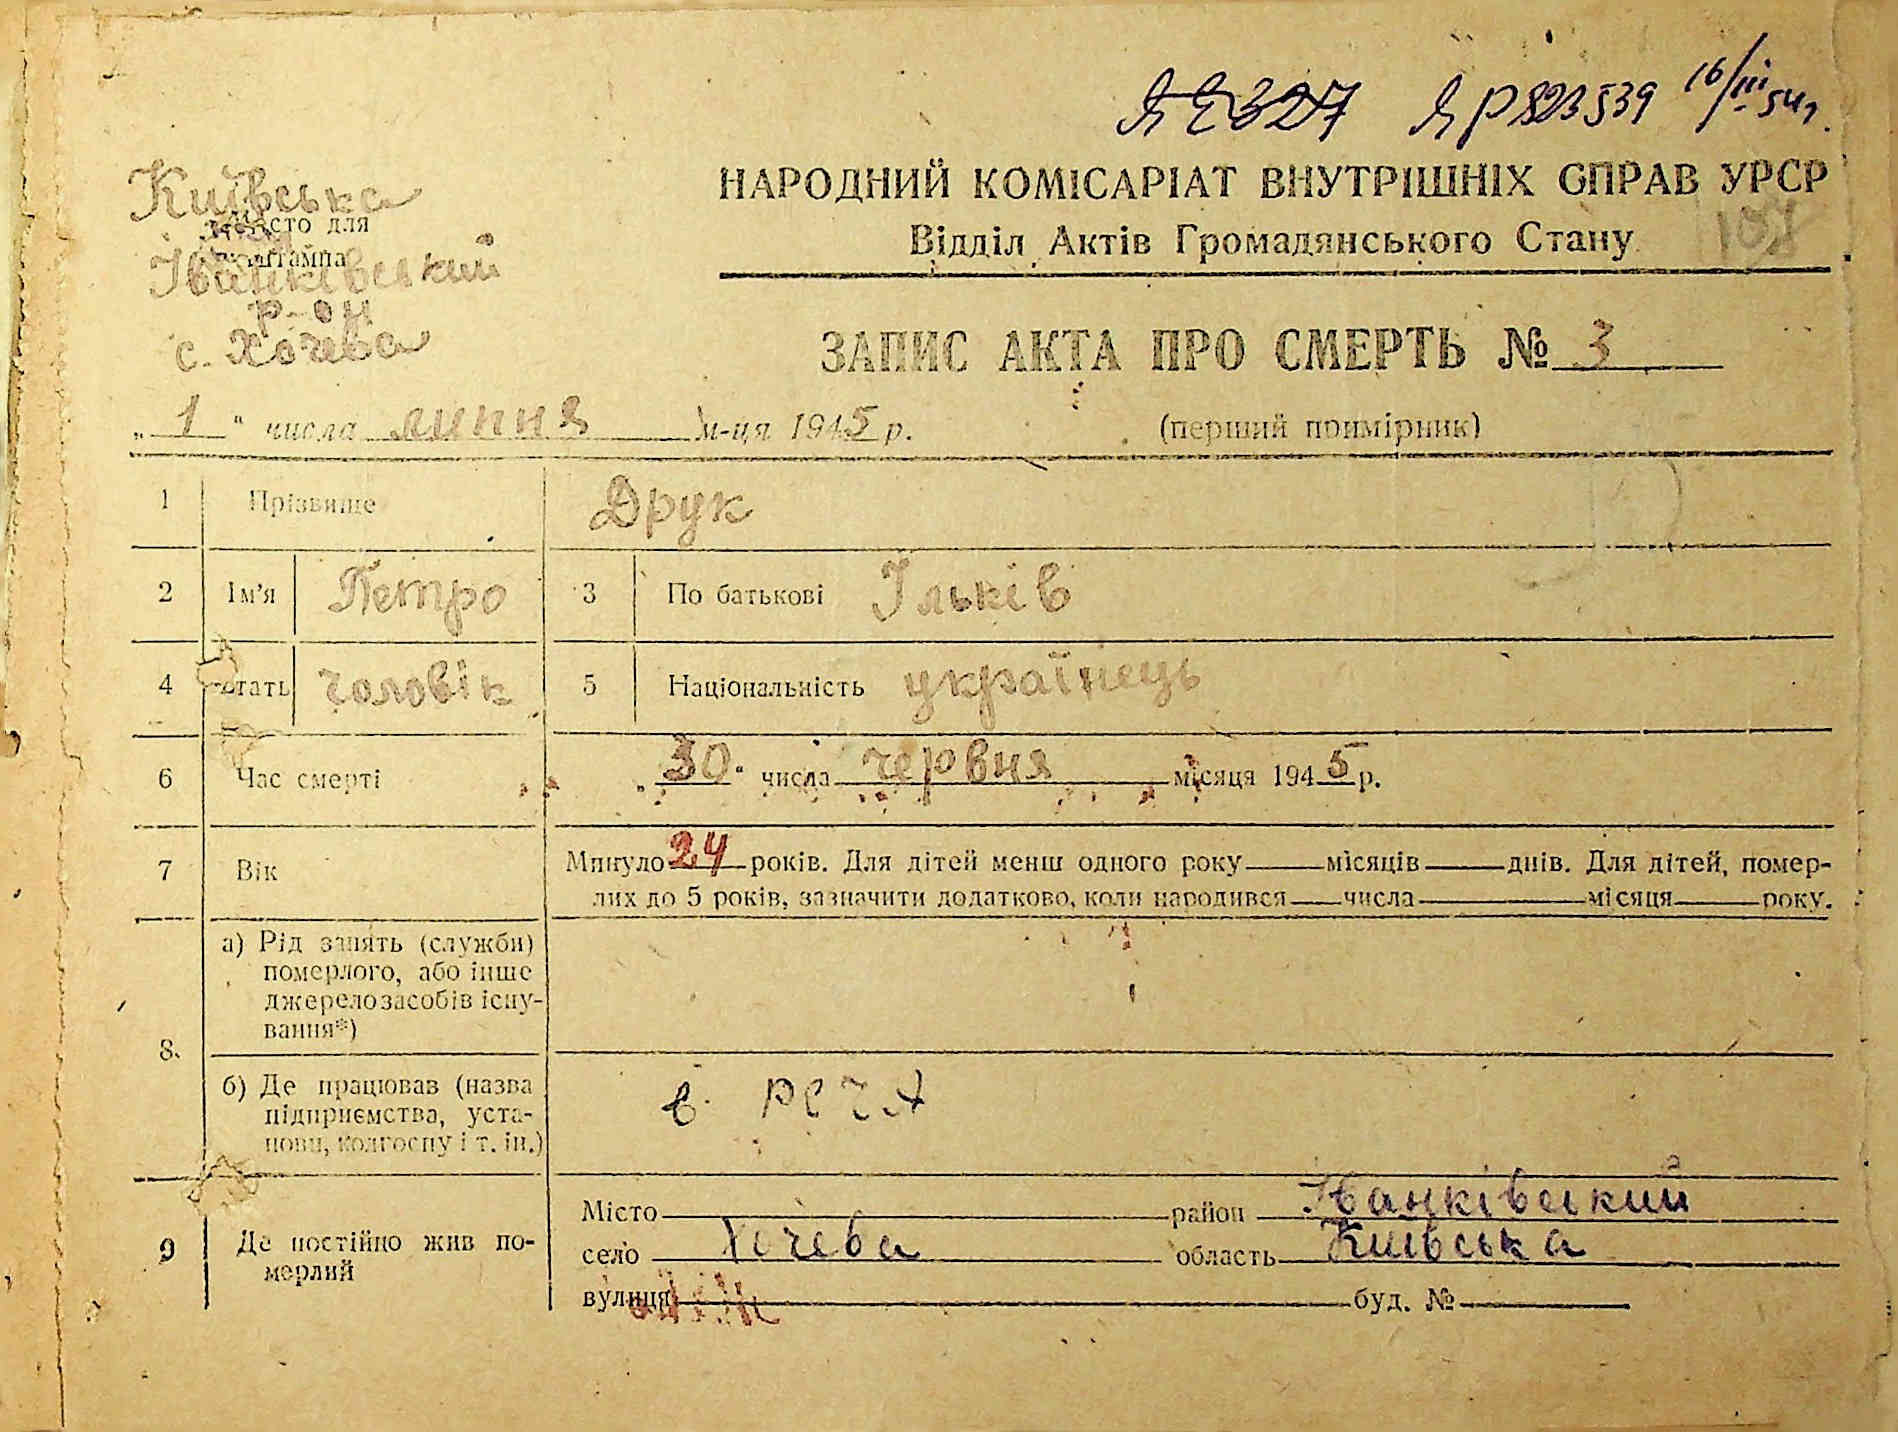 ЯР823539 16/III 54г.
НАРОДНИЙ КОМІСАРІАТ ВНУТРІШНІХ СПРАВ УРСР
Відділ Актів Громадянського Стану
Київська
Місто для
штампа
Іванківський
р-он
с. Хочева
ЗАПИС АКТА ПРО СМЕРТЬ № 3
„ 1 “ числа липня м-ця 1945 р. (перший примірник)
1 Прізвище Друк
2 Ім'я Петро 3 По батькові Ільків
4 Стать чоловік 5 Національність українець
6 Час смерті 30 числа червня місяця 1945 р.
7 Вік Минуло 24 років. Для дітей менш одного року місяців днів. Для дітей, помер-
лих до 5 років, зазначити додатково, коли народився числа місяця року.
8. а) Рід занять (служби)
померлого, або інше
джерело засобів існу-
вання*)
б) Де працював (назва
підприємства, уста-
нови, колгоспу і т. ін.)
в РСЧА
9 Де постійно жив по-
мерлий
Місто район Іванківський
село Хочева область Київська
вулиця буд. №